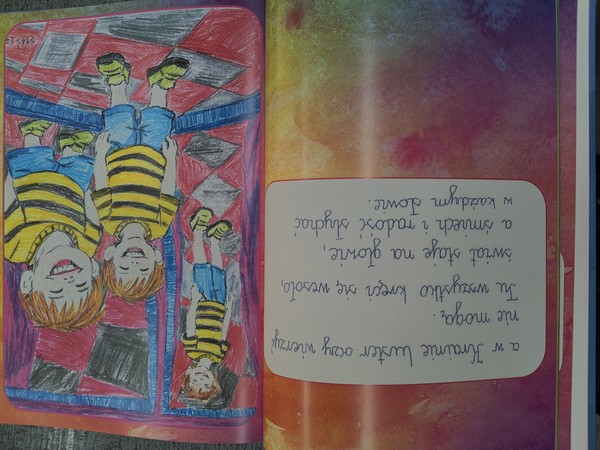 a w Krainie luster oczy wierzyć
nie mogą.
Tu wszystko kręci się wesoło,
świat staje na głowie,
a śmiech i radość słychać
w każdym słowie.